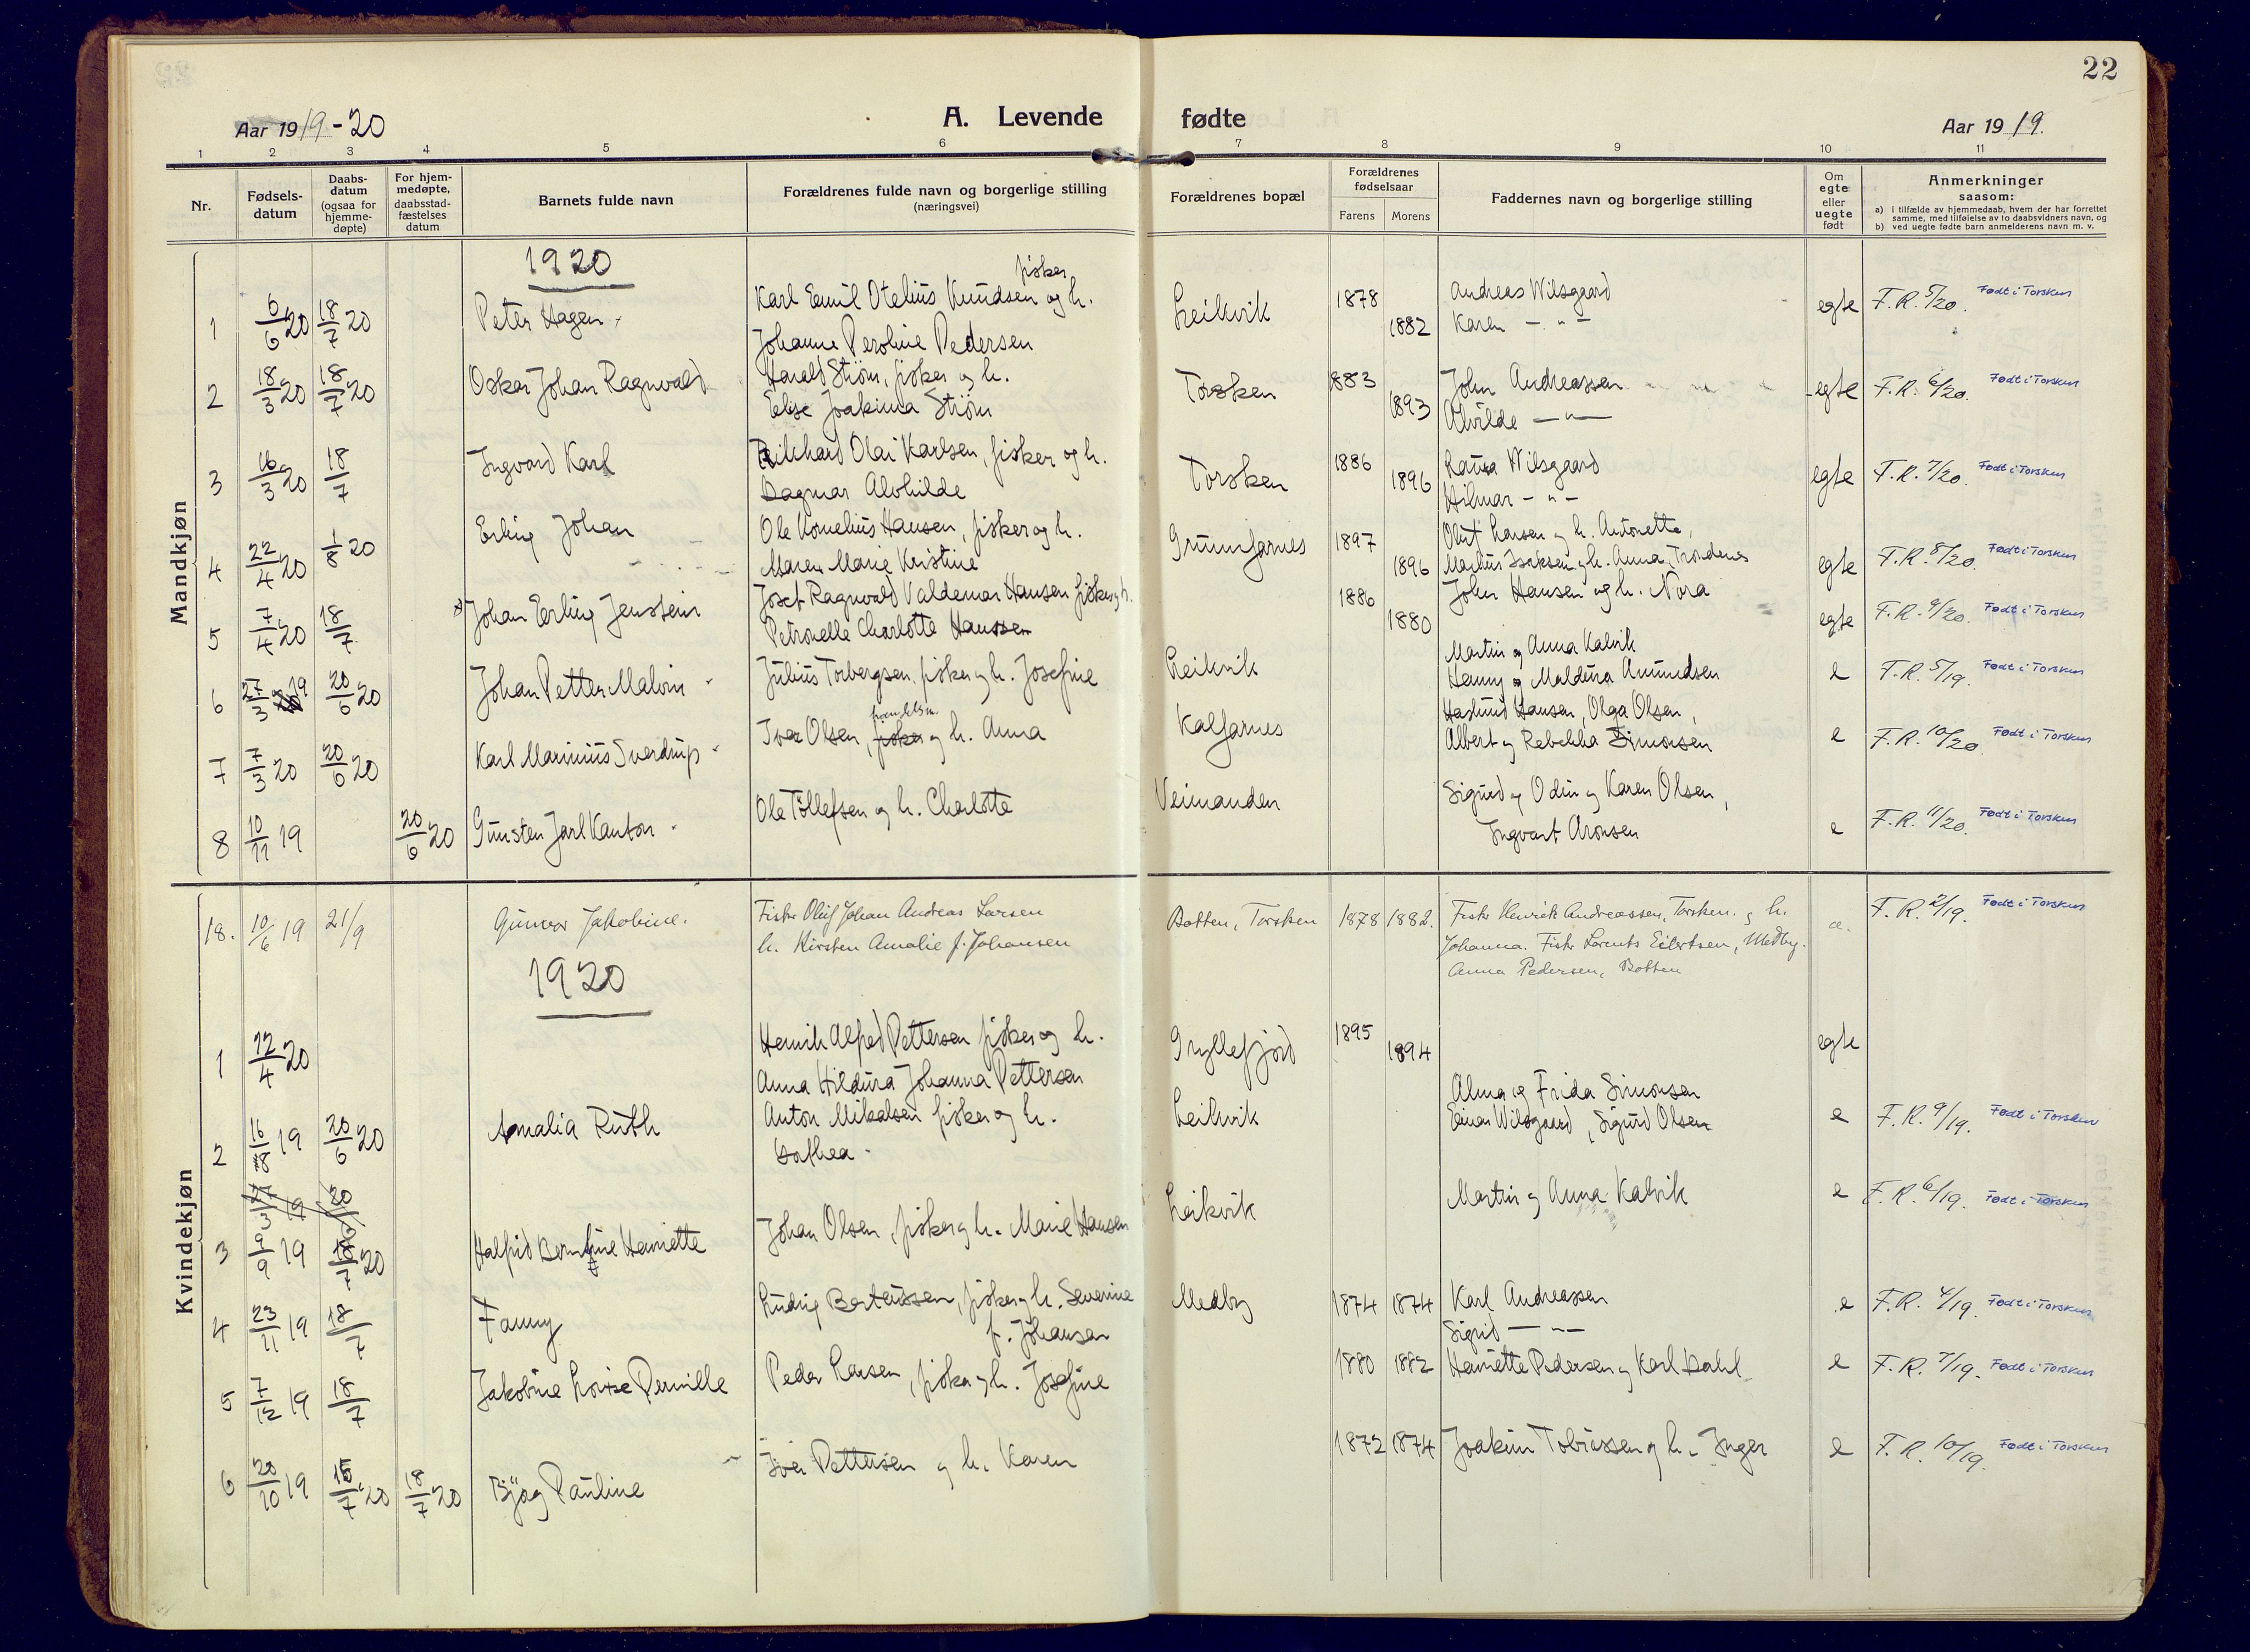 22
Aar 1919-20
A. Levende fødte
Aar 1919.
1 2 3 4 5 6 7 8 9 10 11
Nr.
Fødsels-
datum
Daabs-
datum
(ogsaa for
hjemme-
døpte)
For hjem-
medøpte,
daabsstad-
fæstelses
datum
Barnets fulde navn
Forældrenes fulde navn og borgerlige stilling
(næringsvei)
Forældrenes bopæl
Forældrenes
fødselsaar
Farens Morens
Faddernes navn og borgerlige stilling
Om
egte
eller
uegte
født
Anmerkninger
saasom:
a) i tilfælde av hjemmedaab, hvem der har forrettet
samme, med tilføielse av to daabsvidners navn, og
b) ved uegte fødte barn anmelderens navn m. v.
Mandkjøn
1920
fisker
1 6/6 20 18/7 20 Peter Hagen Karl Emil Otelius Knudsen og h. Leikvik 1878 Andreas Wilsgaard egte F.R. 5/20. Født i Torsken
Johanne Peroline Pedersen 1882 Karen — " —
2 18/3 20 18/7 20 Oskar Johan Ragnvald Harald Strøm, fisker og h. Torsken 1883 John Andreassen egte F.R. 6/20. Født i Torsken
Elise Joakima Strøm 1893 Alvilde — " —
3 16/3 20 18/7 Ingvard Karl Rikhard Olai Karlsen, fisker og h. Torsken 1886 Laura Wilsgaard egte F.R. 7/20. Født i Torsken
Dagmar Alvhilde 1896 Hilmar — " —
4 22/4 20 1/8 20 Erling Johan Ole Kornelius Hansen, fisker og h. Grunnfarnes 1897 Obert Larsen og h. Antonette,
Maren Marie Kristine 1896 Markus Isaksen og h. Anna, Trondenes egte F.R. 8/20. Født i Torsken
5 7/4 20 18/7 Johan Erling Jenstein Josef Ragnvald Valdemar Hansen fisker og h. 1886 John Hansen og h. Nora egte F.R. 9/20. Født i Torsken
Petronelle Charlotte Hanssen 1880
Martin og Anna Kalvik
6 27/3 19 20/6 20 Johan Petter Malvin Julius Torbergsen, fisker og h. Josefine Leikvik Henny og Maldura Amundsen e F.R. 5/19. Født i Torsken
handelsm. Haslund Hansen, Olga Olsen,
7 7/3 20 20/6 20 Karl Marinius Sverdrup Iver Olsen, fisker og h. Anna Kalfarnes Albert og Rebekka Simonsen e F.R. 10/20. Født i Torsken
8 10/11 19 20/6 20 Gunsten Jarl Kanton Ole Tollefsen og h. Charlotte Veimanden Sigurd og Odin og Karen Olsen,
Ingvart Aronsen e F.R. 11/20. Født i Torsken
Kvindekjøn
18. 10/6 19 21/9 Gunvor Jakobine. Fisker Oluf Johan Andreas Larsen Botten, Torsken 1878 1882. Fisker Henrik Andreassen, Torsken. og h. æ. F.R. 2/19. Født i Torsken
h. Kirsten Amalie f. Johansen Johanna. Fisker Lorents Eilertsen, Medby.
Anna Pedersen, Botten
1920
1 12/4 20 Henrik Alfred Pettersen fisker og h. Gryllefjord 1895 egte
Anna Hildura Johanna Pettersen 1894
2 16/8 19 20/6 20 Amalia Ruth Anton Mikalsen fisker og h. Leikvik Alma og Frida Simonsen e F.R. 9/19. Født i Torsken
Dorthea Einar Wilsgaard, Sigurd Olsen
27/3 19 20/6
3 9/9 19 18/7 20 Halfrid Berntine Henriette Johan Olsen, fisker og h. Marie Hansen Leikvik Martin og Anna Kalvik e F.R. 6/19. Født i Torsken
4 23/11 19 18/7 Fanny Ludvig Berteussen, fisker og h. Severine Medby 1874 1874 Karl Andreassen e F.R. 4/19. Født i Torsken
f. Johansen Sigrid — " —
5 7/12 19 18/7 Jakobine Lovise Pernille Peder Larsen, fisker og h. Josefine 1880 1882 Henriette Pedersen og Karl Dahl e F.R. 7/19. Født i Torsken
6 20/10 19 18/7 20 18/7 20 Bjøg Pauline Iver Pettersen og h. Karen 1872 1874 Joakim Tobiassen og h. Inger e F.R. 10/19. Født i Torsken